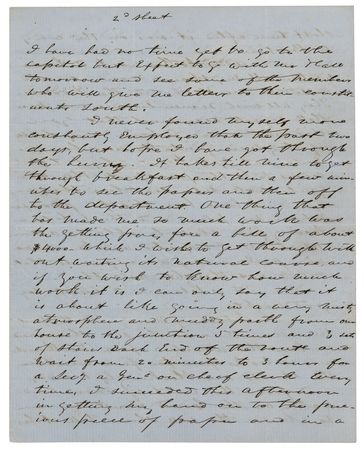 2d sheet
I have had no time yet to go to the
capitol but Expect to go with Mr Hale
tomorrow and see some of the members
who will give me letters to their consti-
tuents South.
I never found myself more
constantly Employed than the past two
days, but hope I have got through
the hurry. It takes till nine to get
through breakfast and then a few min-
utes to see the papers and then off
to the department One thing that
has made me so much work was
the getting pay for a bill of about
$4000. which I wish to get through with
out waiting its natural course and
if you wish to know how much
work it is I can only say that it
is about like going in a very misty
atmosphere and muddy path from our
house to the junction 5 times and 3
of stairs each End of the route and
wait from 20 minutes to 3 hours for
a Secy. Genl or chief clerk Every
time, I succeeded this afternoon
in getting my hand on to the prec-
ious piece of paper and in a